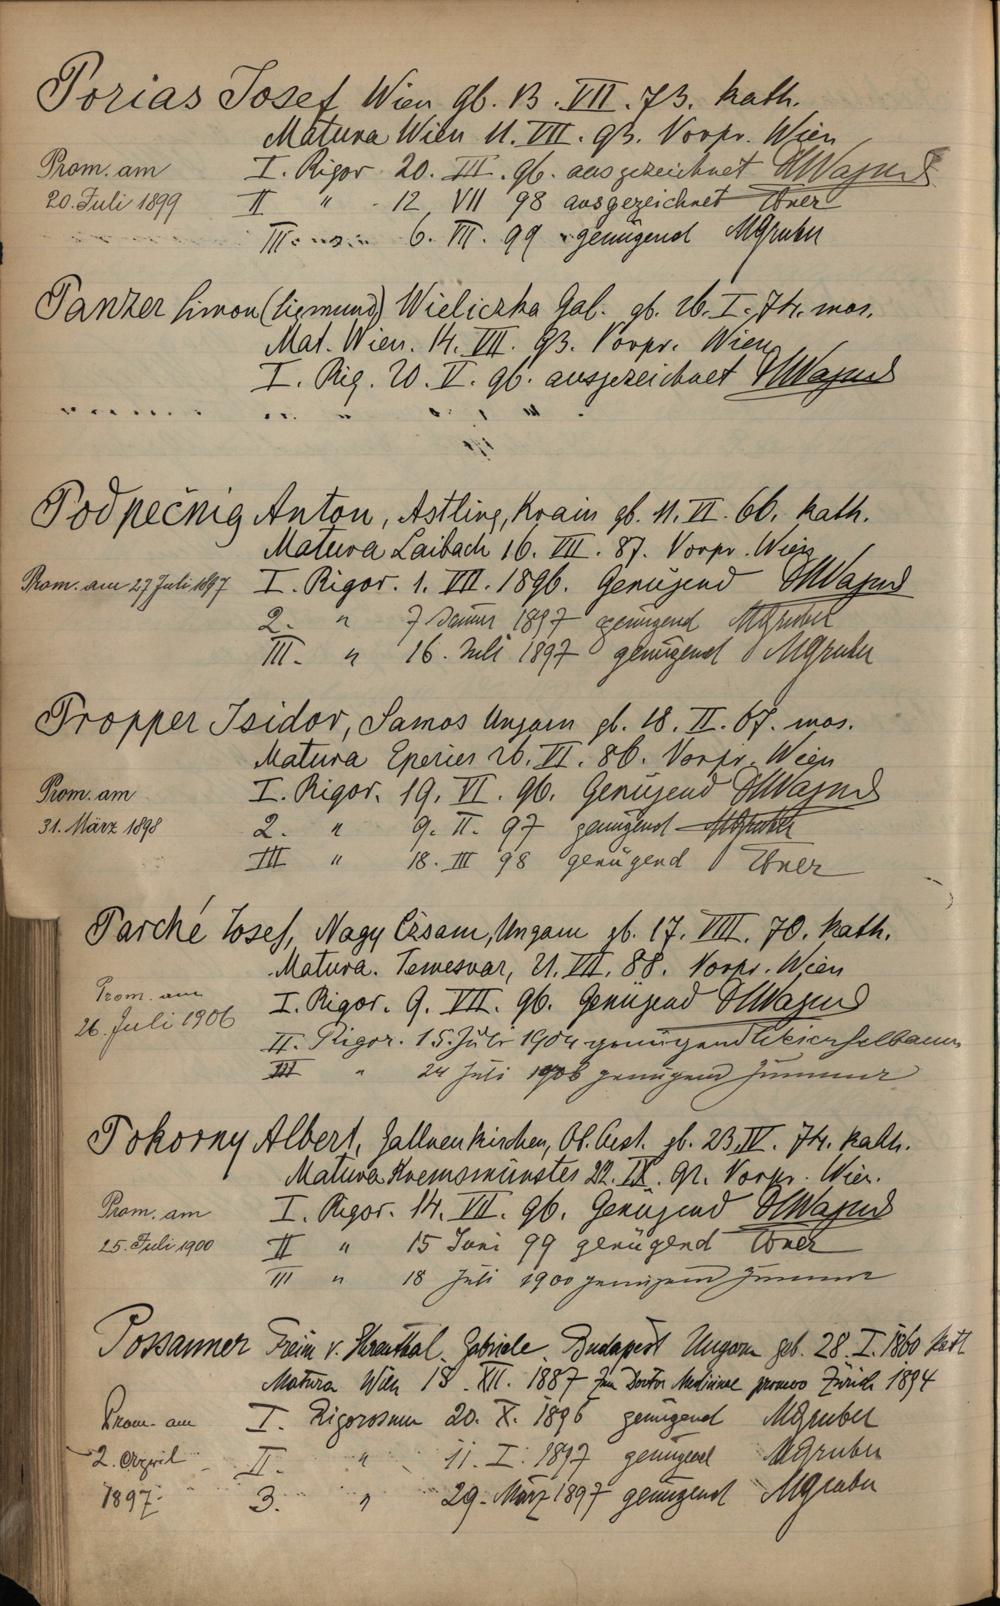 Porias Josef Wien gb. 13. VII. 73. kath.
Matura Wien 11. VII. 93. Vorpr. Wien
Prom. am I. Rigor 20. III. 96. ausgezeichnet
20. Juli 1899 II " 12 VII 98 ausgezeichnet Ebner
III 6. VII. 99 genügend MGruber
Panzer Simon (Sigmund) Wieliczka Gal. gb. 26. I. 74. mos.
Mat. Wien. 14. VII. 93. Vorpr. Wien
I. Rig. 20. V. 96. ausgezeichnet
Podpečnig Anton, Astling, Krain gb. 11. VI. 66. kath.
Matura Laibach 16. VII. 87. Vorpr. Wien
Prom. am 27 Juli 1897 I. Rigor. 1. VII. 1896. Genügend
2. " 7 Januar 1897 genügend MGruber
III. " 16. Juli 1897 genügend MGruber
Propper Isidor, Samos Ungarn gb. 18. II. 67. mos.
Matura Eperies 26. VI. 86. Vorpr. Wien
Prom. am I. Rigor. 19. VI. 96. Genügend
31. März 1898 2. " 9. II. 97 genügend MGruber
III " 18. III 98 genügend Ebner
Parché Josef, Nagy Czsam, Ungarn gb. 17. VIII. 70. kath.
Matura. Temesvar, 21. VII. 88. Vorpr. Wien
Prom. am I. Rigor. 9. VII. 96. Genügend
26. Juli 1906 II. Rigor. 15. Juli 1904 genügend Weichselbaum
III " 24 Juli 1906 genügend
Pokorny Albert, Gallneukirchen, Ob. Oest. gb. 23. IV. 74. kath.
Matura Kremsmünster 22. IX. 92. Vorpr. Wien.
Prom. am I. Rigor. 14. VII. 96. Genügend
25. Juli 1900 II " 15 Juni 99 genügend Ebner
III " 18 Juli 1900 genügend
Possanner Freiin v. Ehrenthal Gabriele Budapest Ungarn geb. 28. I. 1860 kath
Matura Wien 18. XII. 1887 zum Doctor Medicinae promov Zürich 1894
Prom. am I. Rigorosum 20. X. 1896 genügend MGruber
2. April II. " 11. I. 1897 genügend MGruber
1897. 3. " 29. März 1897 genügend MGruber